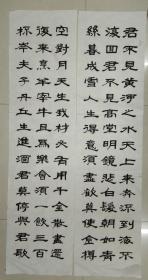 君不見黃河之水天上來奔流到海不
復回君不見高堂明鏡悲白髮朝如青
絲暮成雪人生得意須盡歡莫使金樽
空對月天生我材必有用千金散盡還
復來烹羊宰牛且為樂會須一飲三百
杯岑夫子丹丘生進酒君莫停與君歌